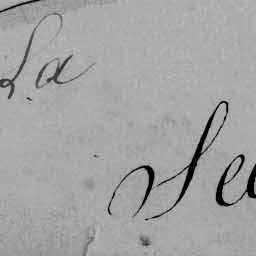 La
Se